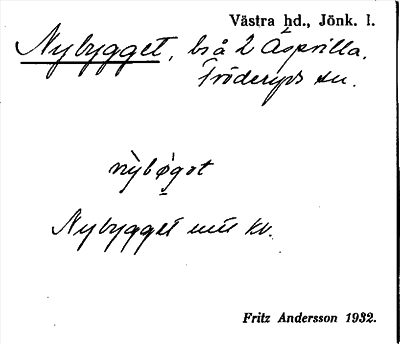 Västra hd., Jönk. l.
Nybygget, bs å 2 Äspvilla.
Fröderyds sn.
nỳbø̀gət
Nybygget
Fritz Andersson 1932.